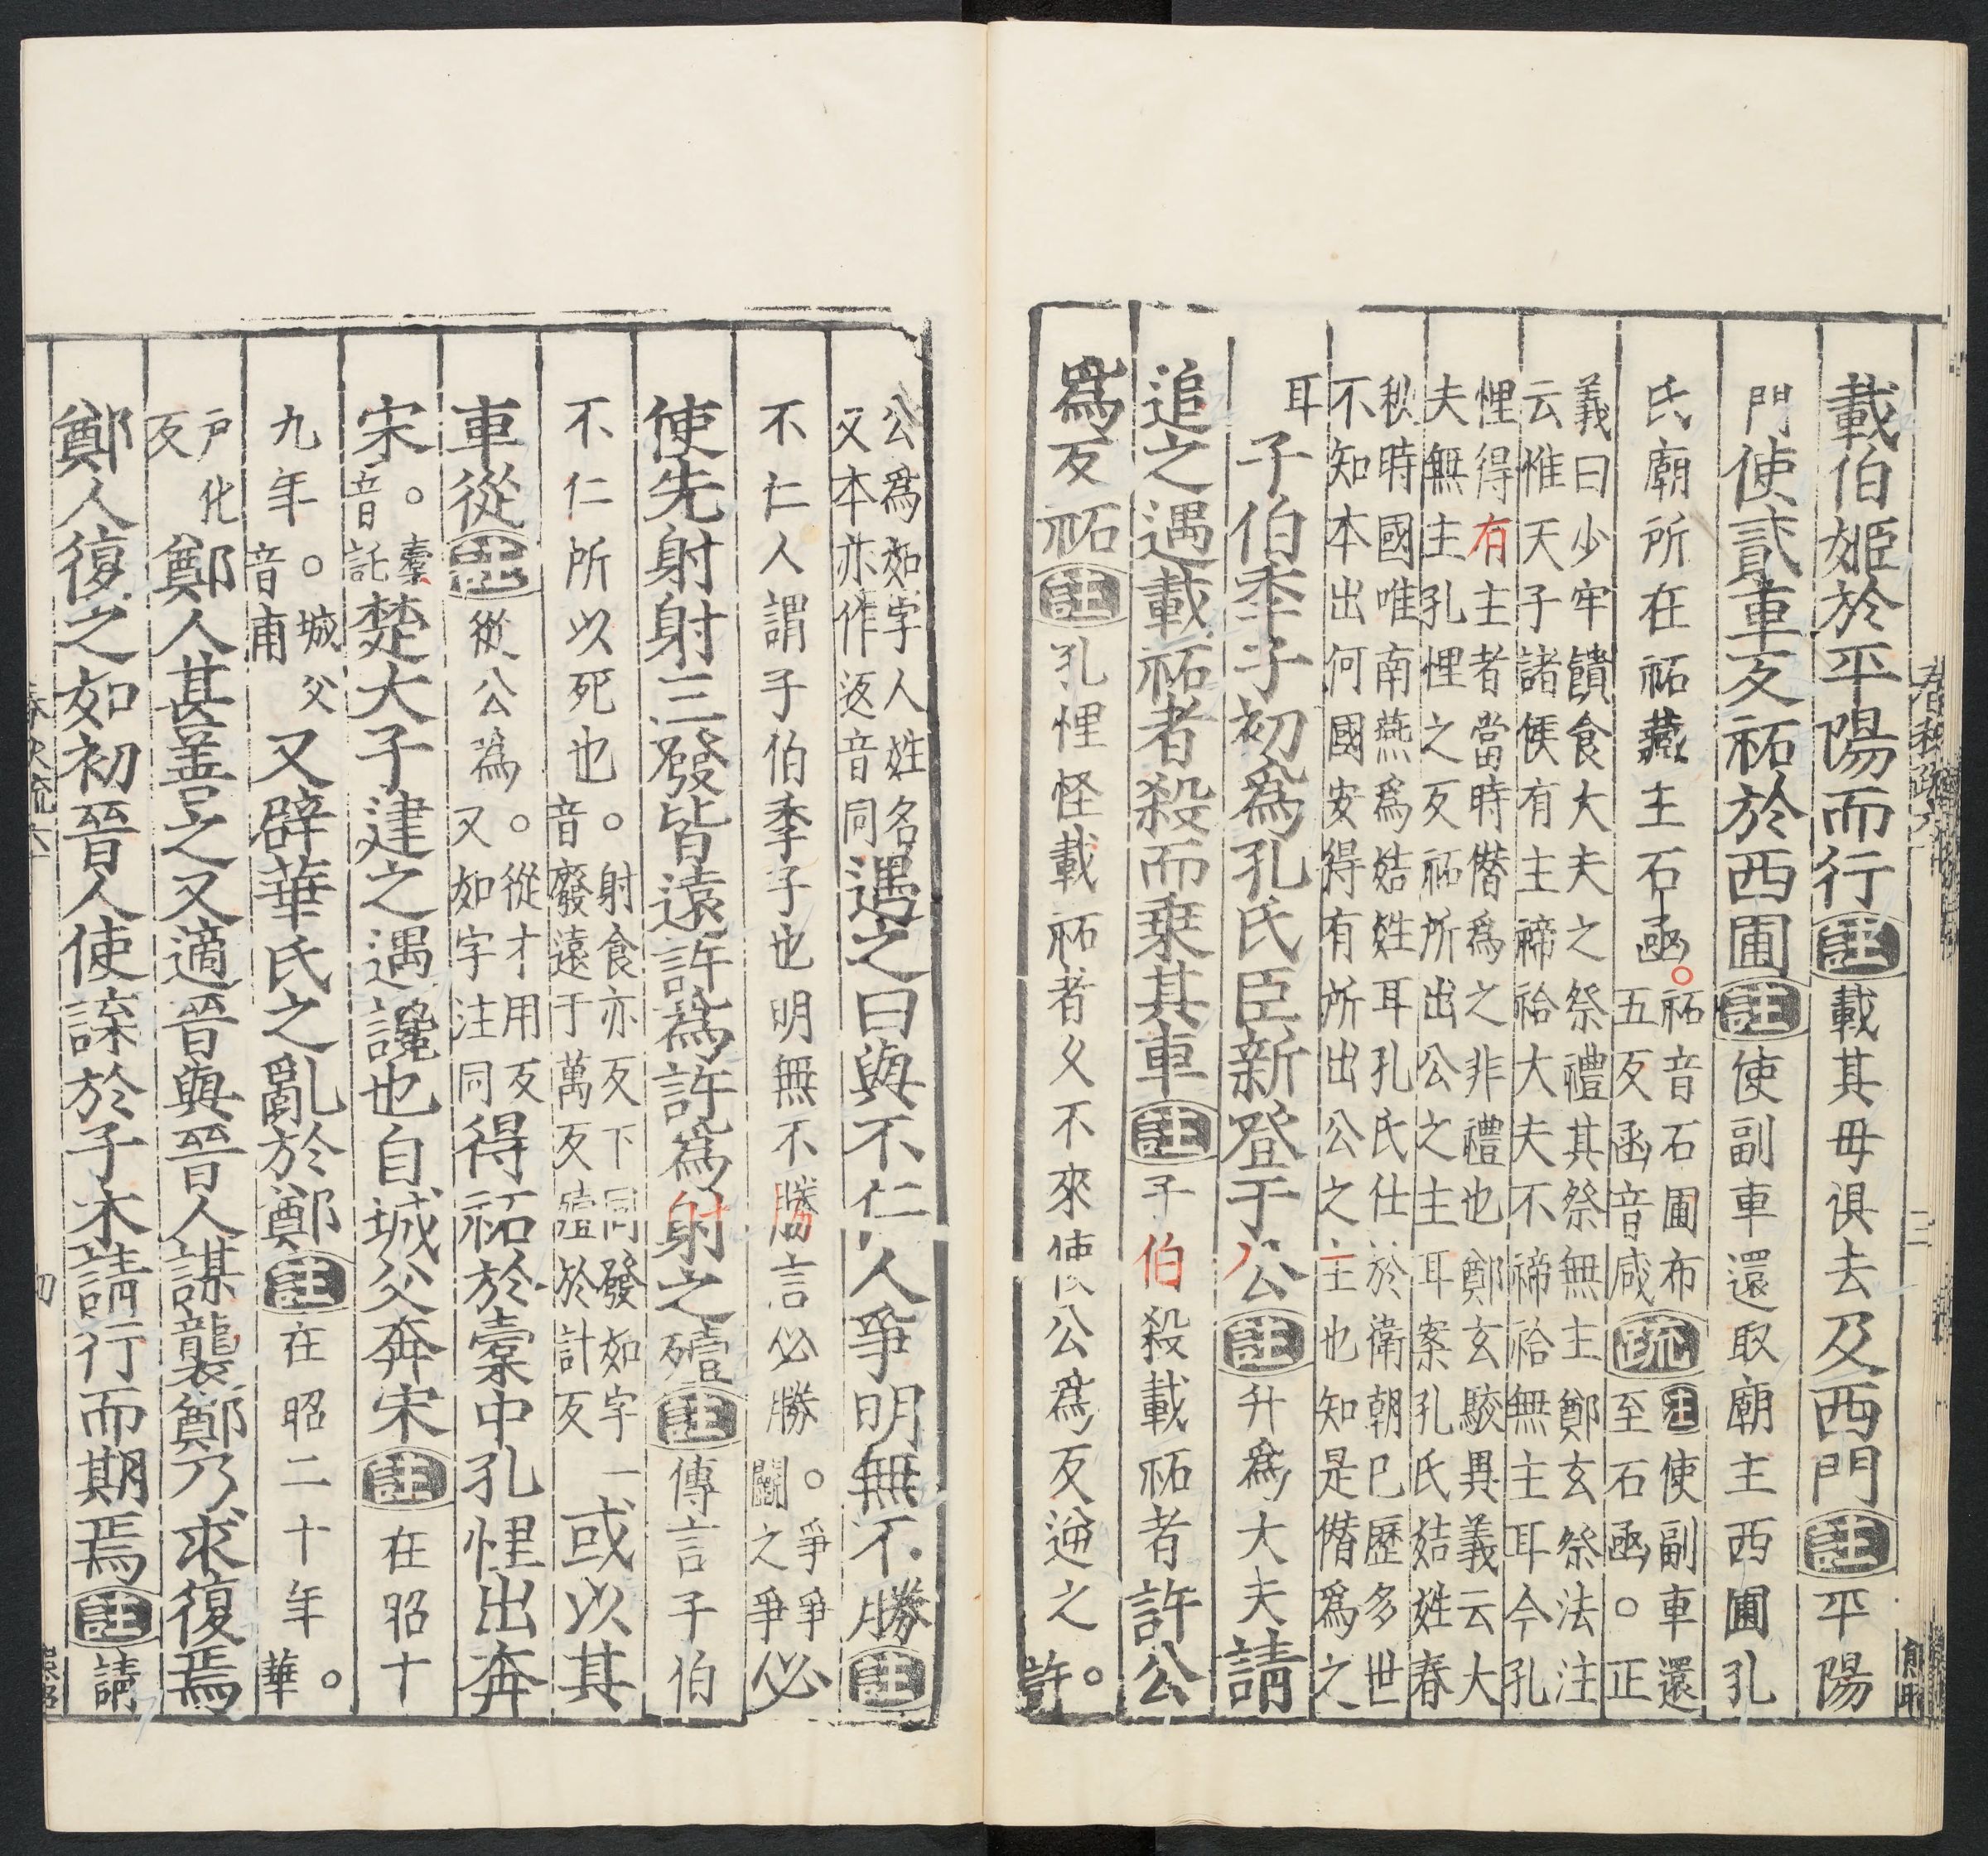 載伯姬於平陽而行註載其毋俱去及西門註平陽
門使貳車反祏於西圃註使副車還取廟主西圃孔
氏廟所在祏藏主石函。祏音石圃布五反函音咸疏注使副車還至石函。正
義曰少牢饋食大夫之祭禮其祭無主鄭玄祭法注
云惟天子諸侯有主禘祫大夫不禘祫無主耳今孔
悝得有主者當時僭爲之非禮也鄭玄駮異義云大
夫無主孔悝之反祏所出公之主耳案孔氏姞姓春
秋時國唯南燕爲姞姓耳孔氏仕於衛朝已歷多世
不知本出何國安得有所出公之主也知是僭爲之
耳子伯季子初爲孔氏臣新登于公註升爲大夫請
追之遇載祏者殺而乗其車註子伯殺載祏者許公
爲反祏註孔悝怪載祏者久不來使公爲反逆之。許
公爲如字人姓名又本亦作返音同遇之曰與不仁人爭明無不勝註
不仁人謂子伯季子也明無不勝言必勝。爭爭鬭之爭必
使先射射三發皆遠許爲許爲射之殪註傳言子伯
不仁所以死也。射食亦反下同發如字一音廢遠于萬反殪於計反或以其
車從註從公爲。從才用反又如字注同得祏於橐中孔悝出奔
宋。橐音託楚大子建之遇讒也自城父奔宋註在昭十
九年。城父音甫又辟華氏之亂於鄭註在昭二十年。華
戶化反鄭人甚善之又適晉與晉人謀襲鄭乃求復焉
鄭人復之如初晉人使諜於子木請行而期焉註請